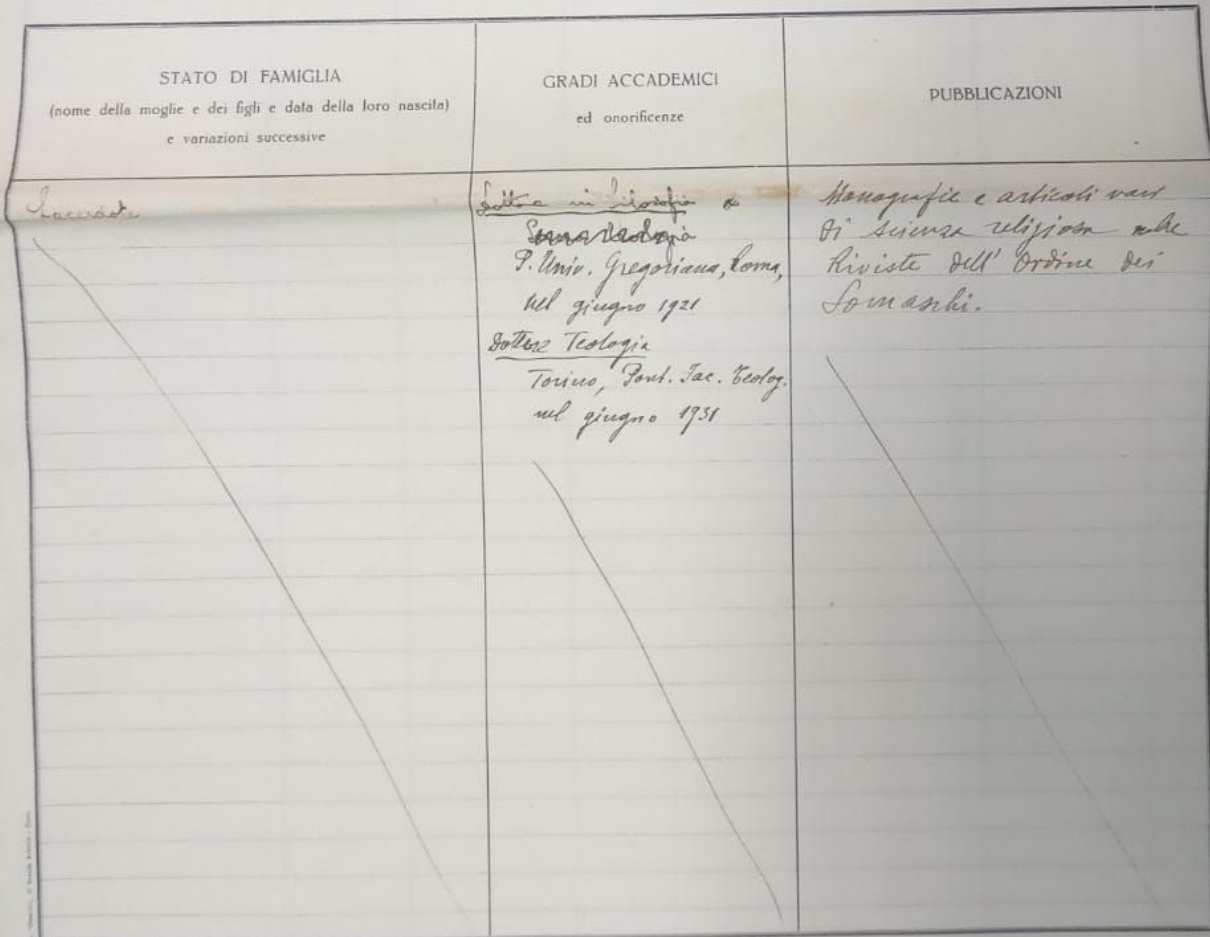 STATO DI FAMIGLIA
(nome della moglie e dei figli e data della loro nascita)
e variazioni successive
Sacerdote
GRADI ACCADEMICI
ed onorificenze
Dottore in Filosofia
P. Univ. Gregoriana, Roma,
nel giugno 1921
Dottore Teologia
Torino, Pont. Fac. Teolog.
nel giugno 1931
PUBBLICAZIONI
Monografie e articoli vari
di scienza religiosa nelle
Riviste dell' Ordine dei
Somaschi.